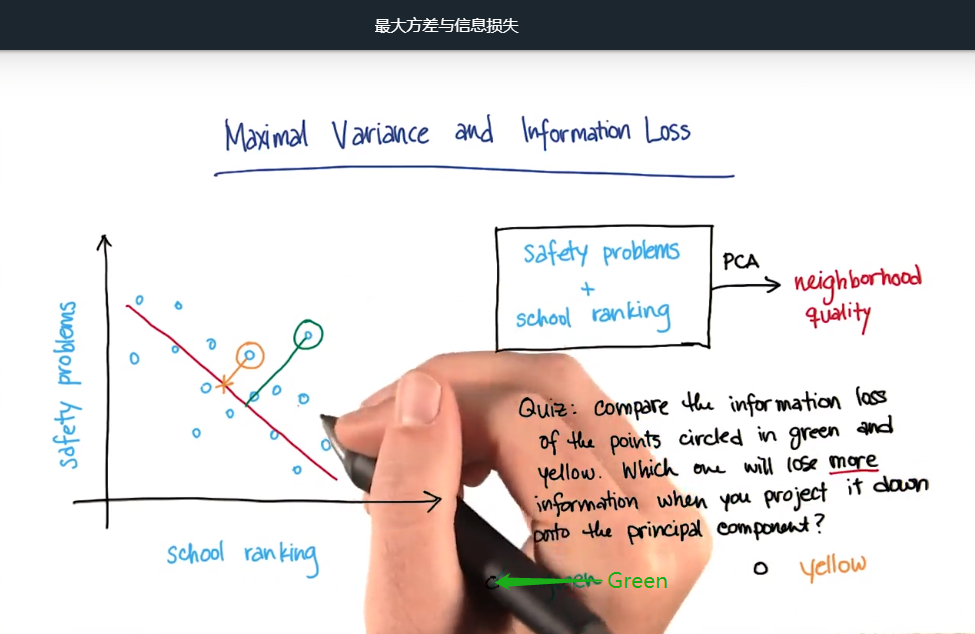 最大方差与信息损失
Maximal Variance and Information Loss
safety problems
school ranking
safety problems
+
school ranking
PCA
neighborhood
quality
Quiz: compare the information loss
of the points circled in green and
yellow. Which one will lose more
information when you project it down
onto the principal component?
Green
yellow